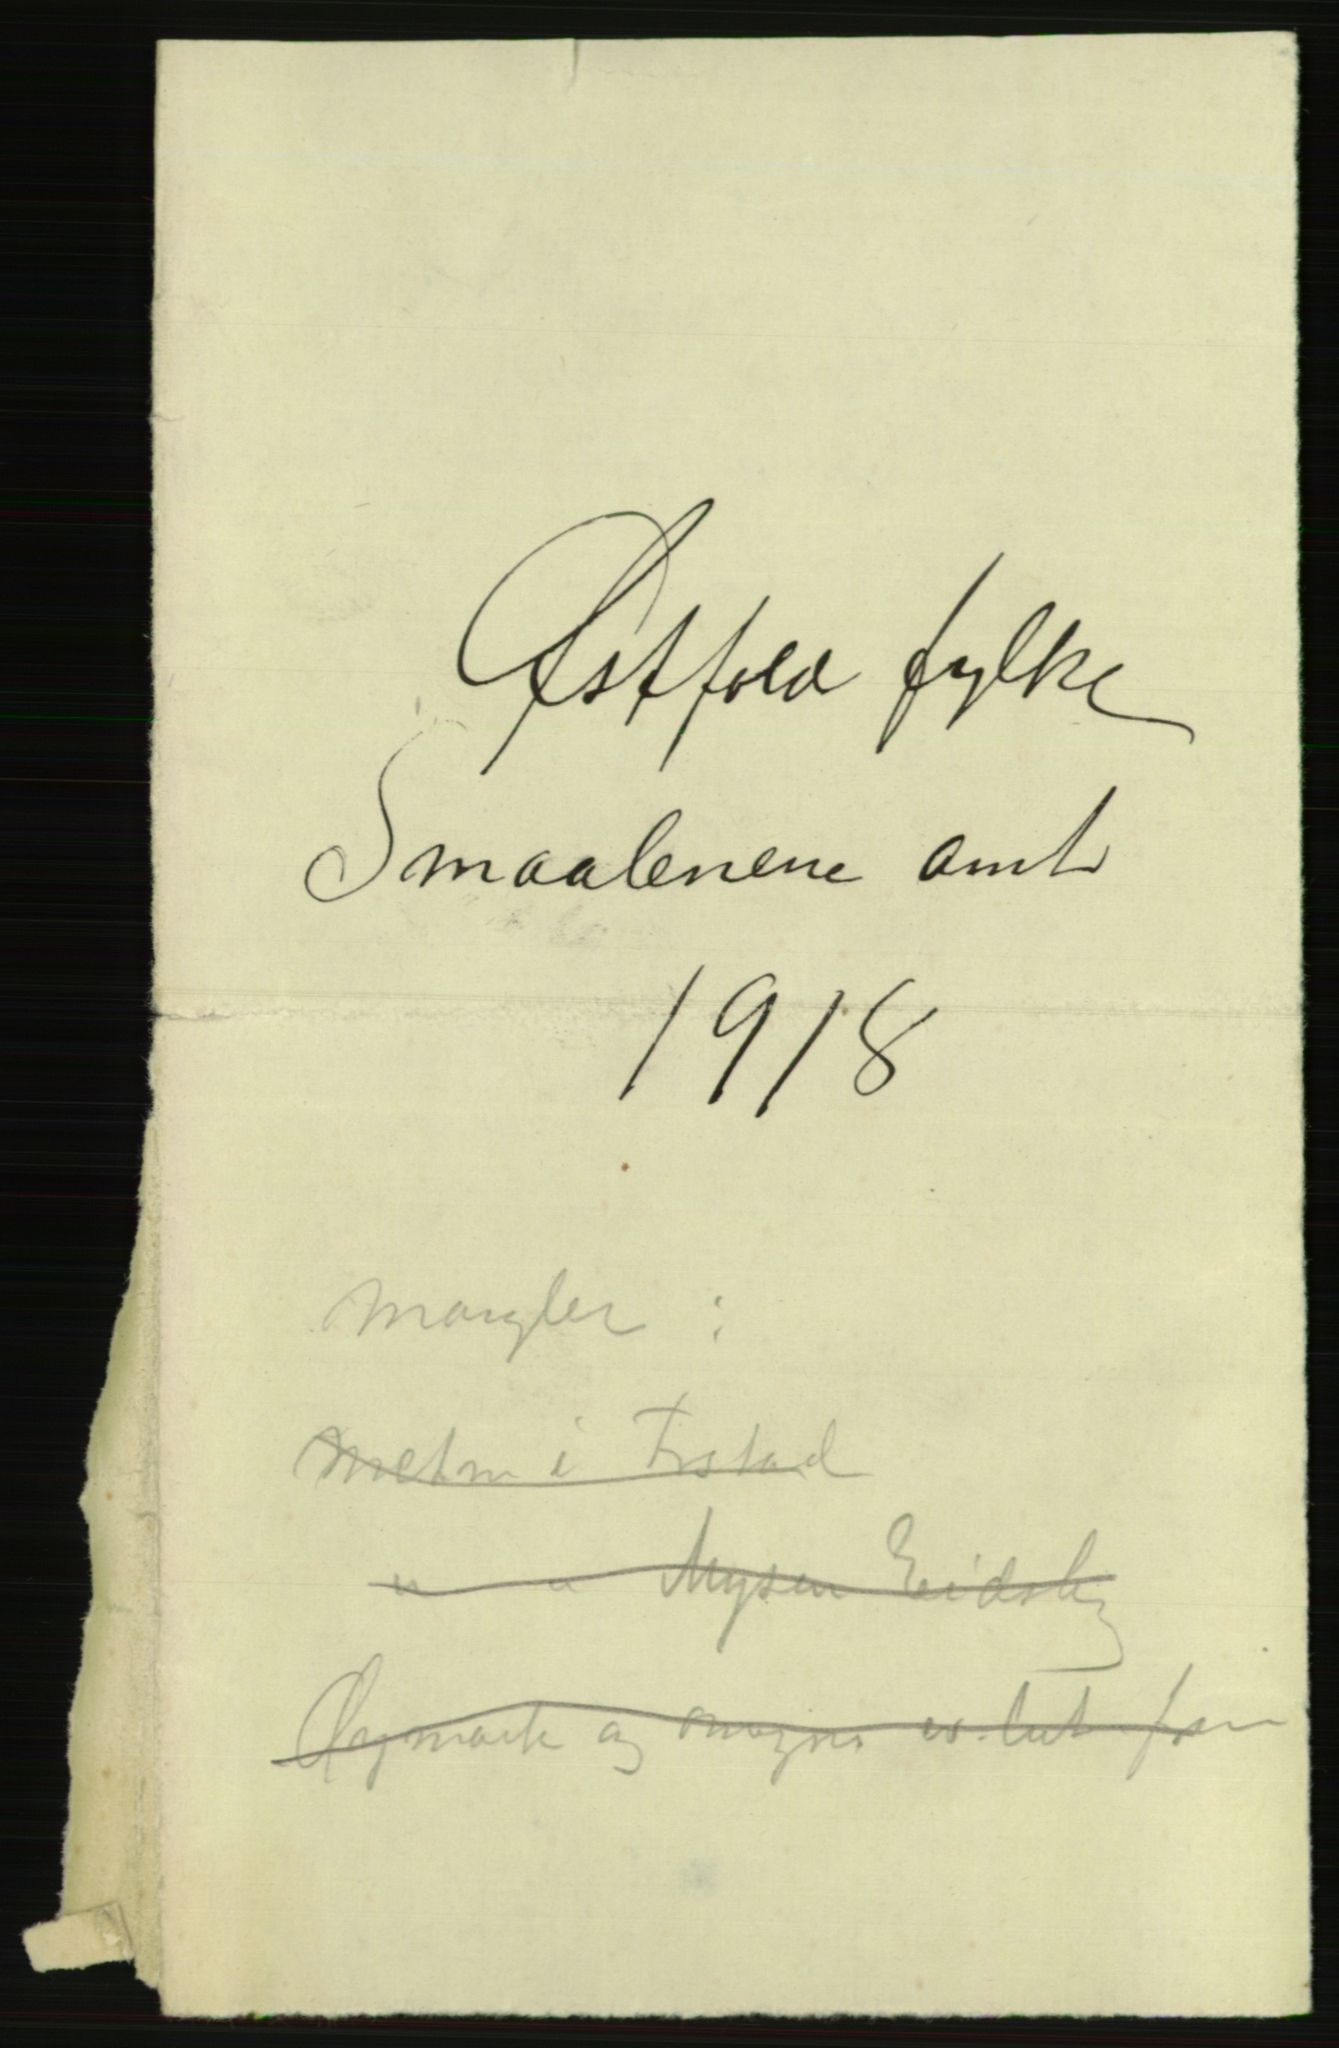 Østfold fylke
Smaalenene amt
1918
Mangler :
Metn i Frstad
" " Mysen Eidsby
Øymark og